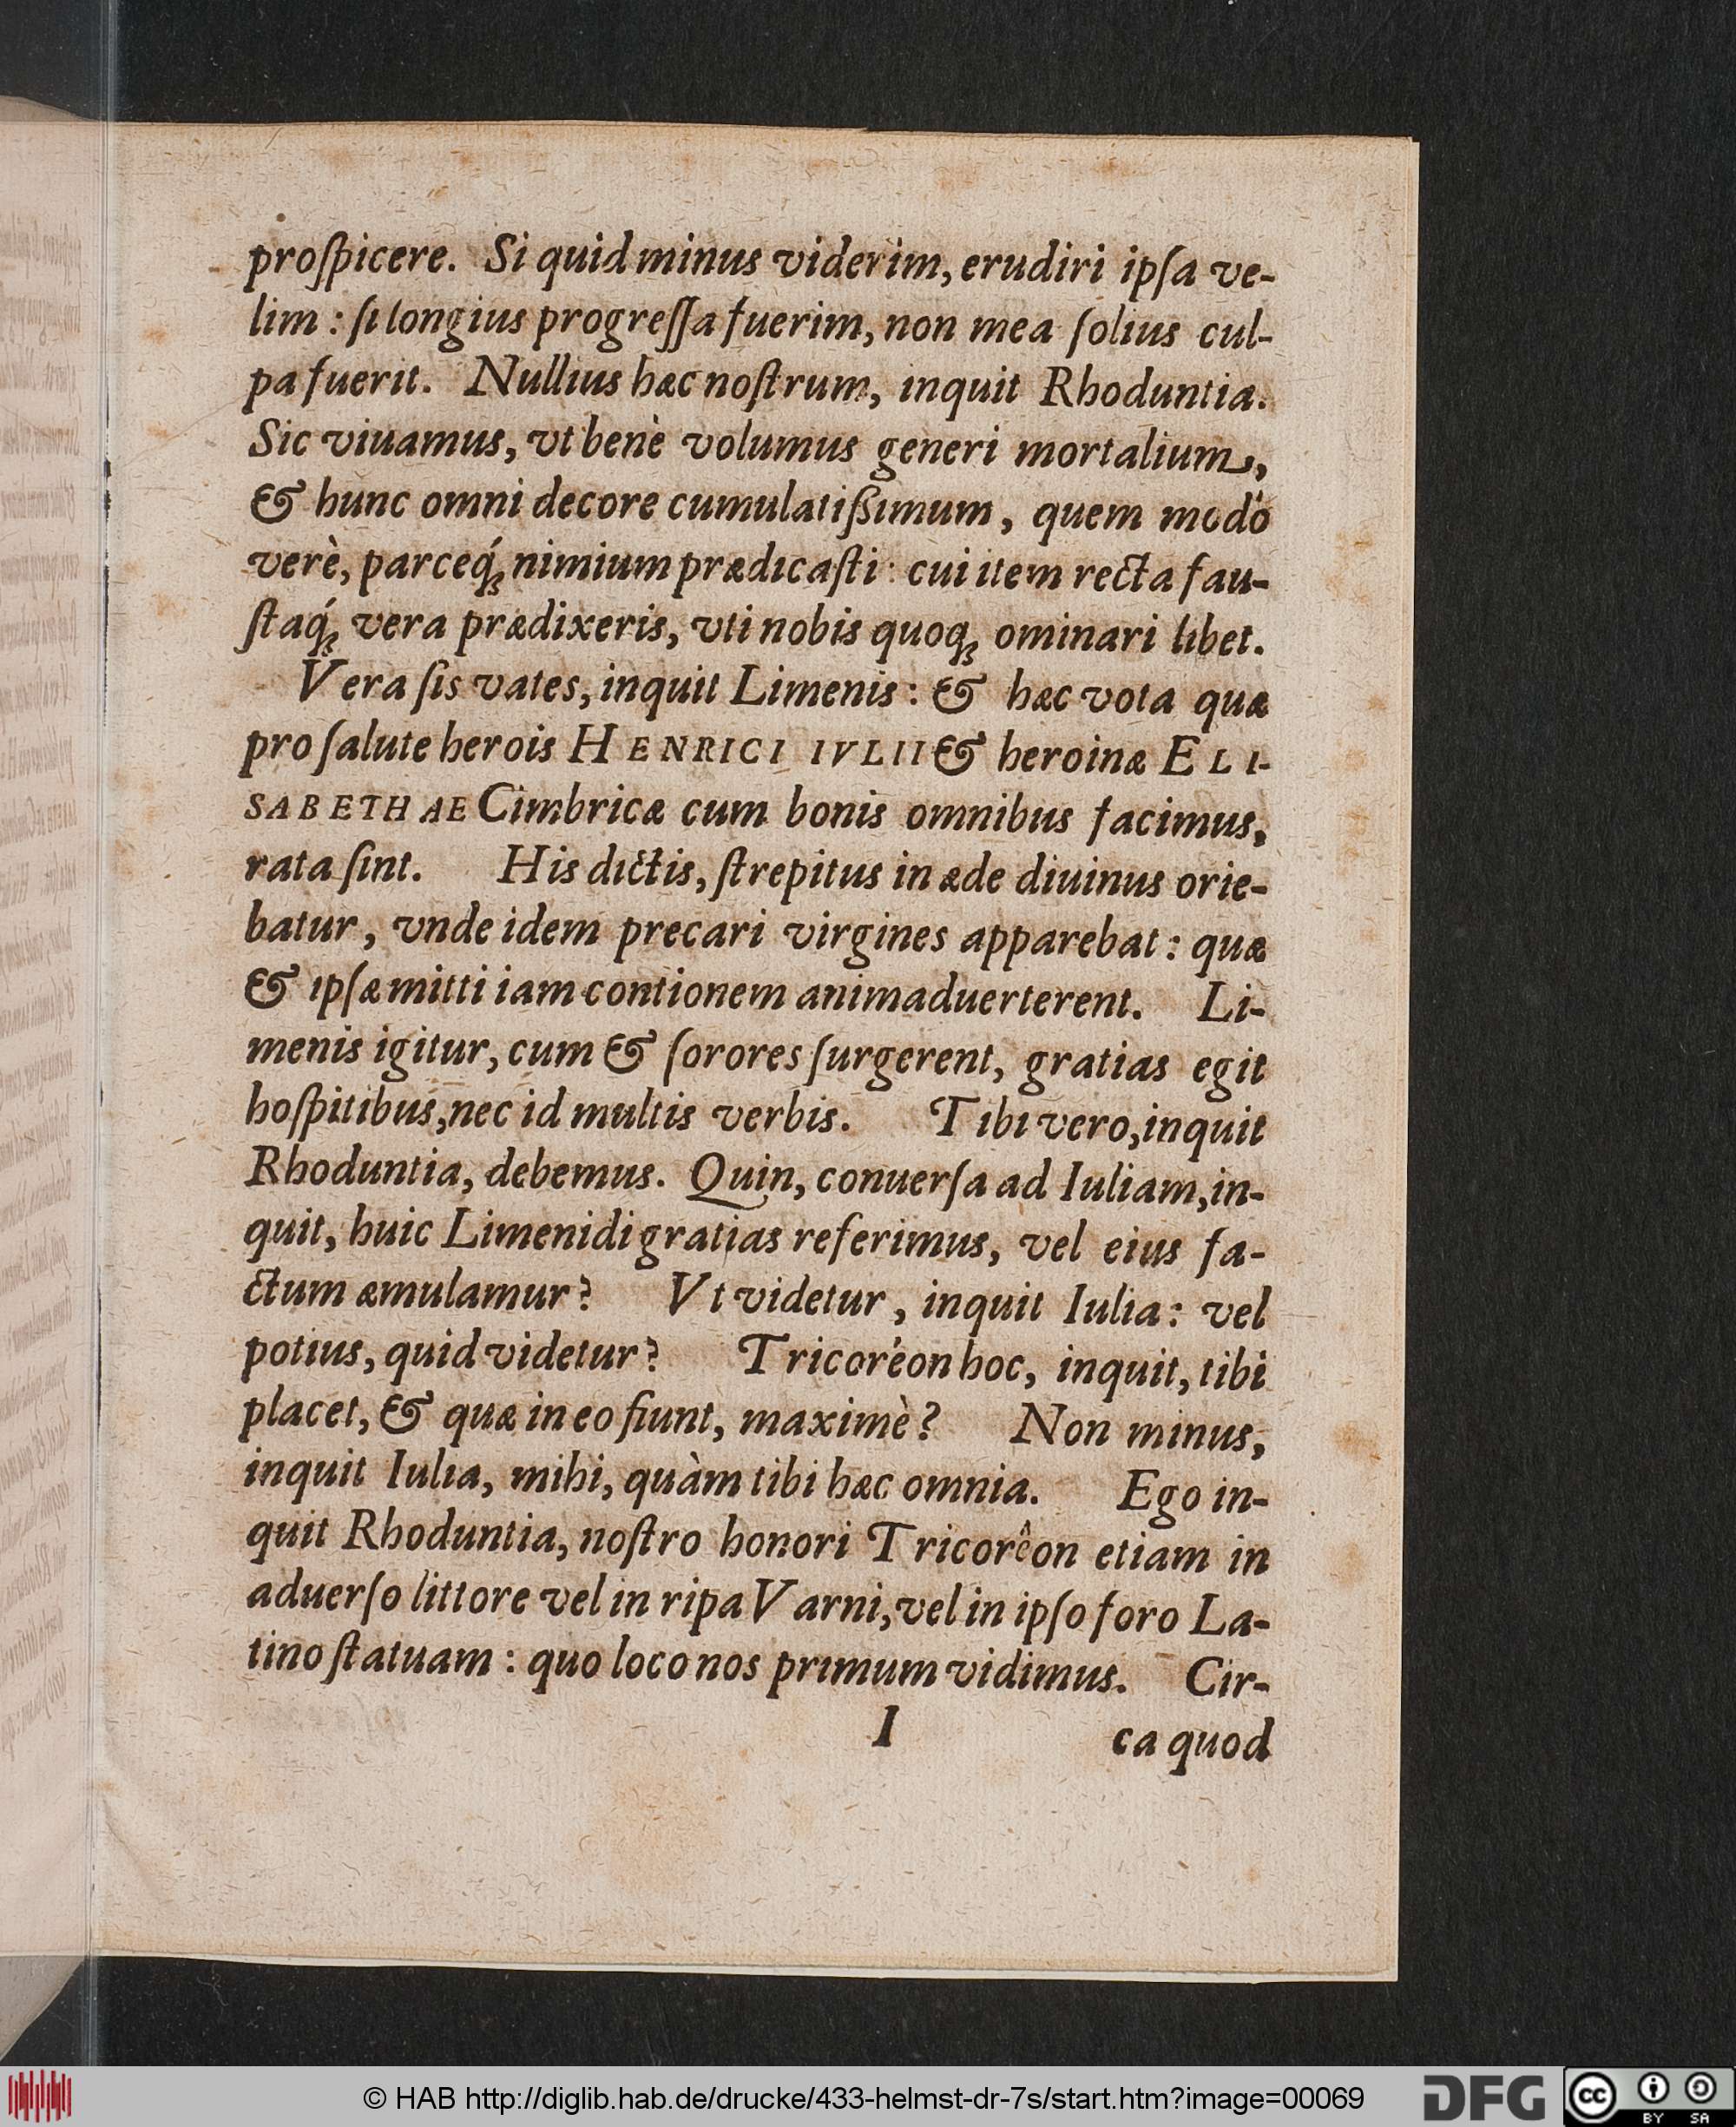 proſpicere. Si quid minus viderim, erudiri ipſa ve-
lim: ſi longius progreſſa fuerim, non mea ſolius cul-
pa fuerit. Nullius hæc noſtrum, inquit Rhoduntia.
Sic viuamus, vt benè volumus generi mortalium,
& hunc omni decore cumulatiſsimum, quem modò
verè, parceq́ꝫ nimium prædicaſti: cui item recta fau-
ſtaq́ꝫ vera prædixeris, vti nobis quoqꝫ ominari libet.
Vera ſis vates, inquit Limenis: & hæc vota quæ
pro ſalute herois HENRICI IVLII & heroinæ ELI-
SABETHAE Cimbricæ cum bonis omnibus facimus,
rata ſint. His dictis, ſtrepitus in æde diuinus orie-
batur, vnde idem precari virgines apparebat: quæ
& ipſæ mitti iam contionem animaduerterent. Li-
menis igitur, cum & ſorores ſurgerent, gratias egit
hoſpitibus, nec id multis verbis. Tibi vero, inquit
Rhoduntia, debemus. Quin, conuerſa ad Iuliam, in-
quit, huic Limenidi gratias referimus, vel eius fa-
ctum æmulamur? Vt videtur, inquit Iulia: vel
potius, quid videtur? Tricoréon hoc, inquit, tibi
placet, & quæ in eo fiunt, maximè? Non minus,
inquit Iulia, mihi, quàm tibi hæc omnia. Ego in-
quit Rhoduntia, noſtro honori Tricorêon etiam in
aduerſo littore vel in ripa Varni, vel in ipſo foro La-
tino ſtatuam: quo loco nos primum vidimus. Cir-
I ca quod
© HAB http://diglib.hab.de/drucke/433-helmst-dr-7s/start.htm?image=00069
DFG
cc BY SA